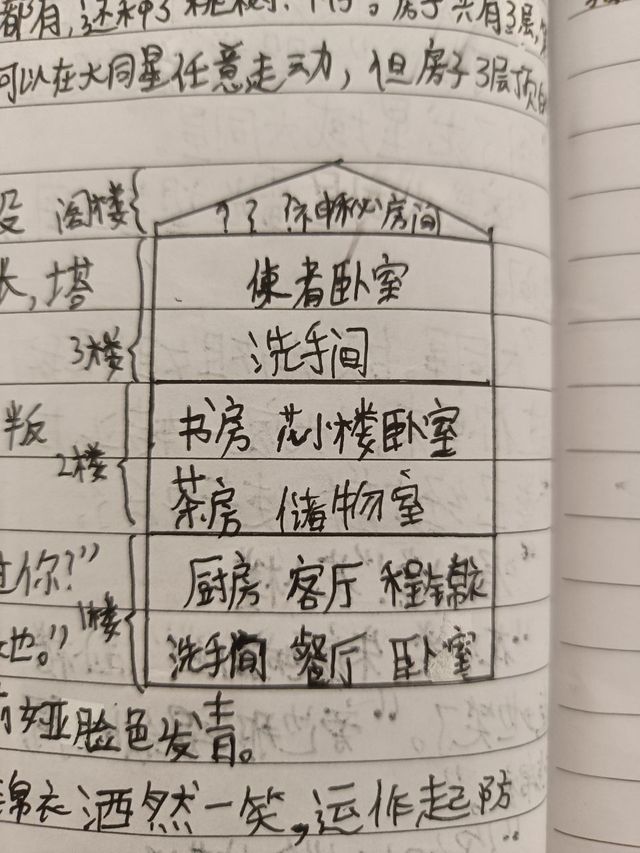 都有,还种了桃树、竹子。房子共有3层,
可以在大同星任意走动,但房子3层顶的
阁楼 ？？？神秘房间
长,塔 使者卧室
3楼 洗手间
叛 书房 花小楼卧室
2楼 茶房 储物室
过你?” 厨房 客厅 程锦衣
地。” 1楼 洗手间 餐厅 卧室
娅脸色发青。
锦衣洒然一笑,运作起防